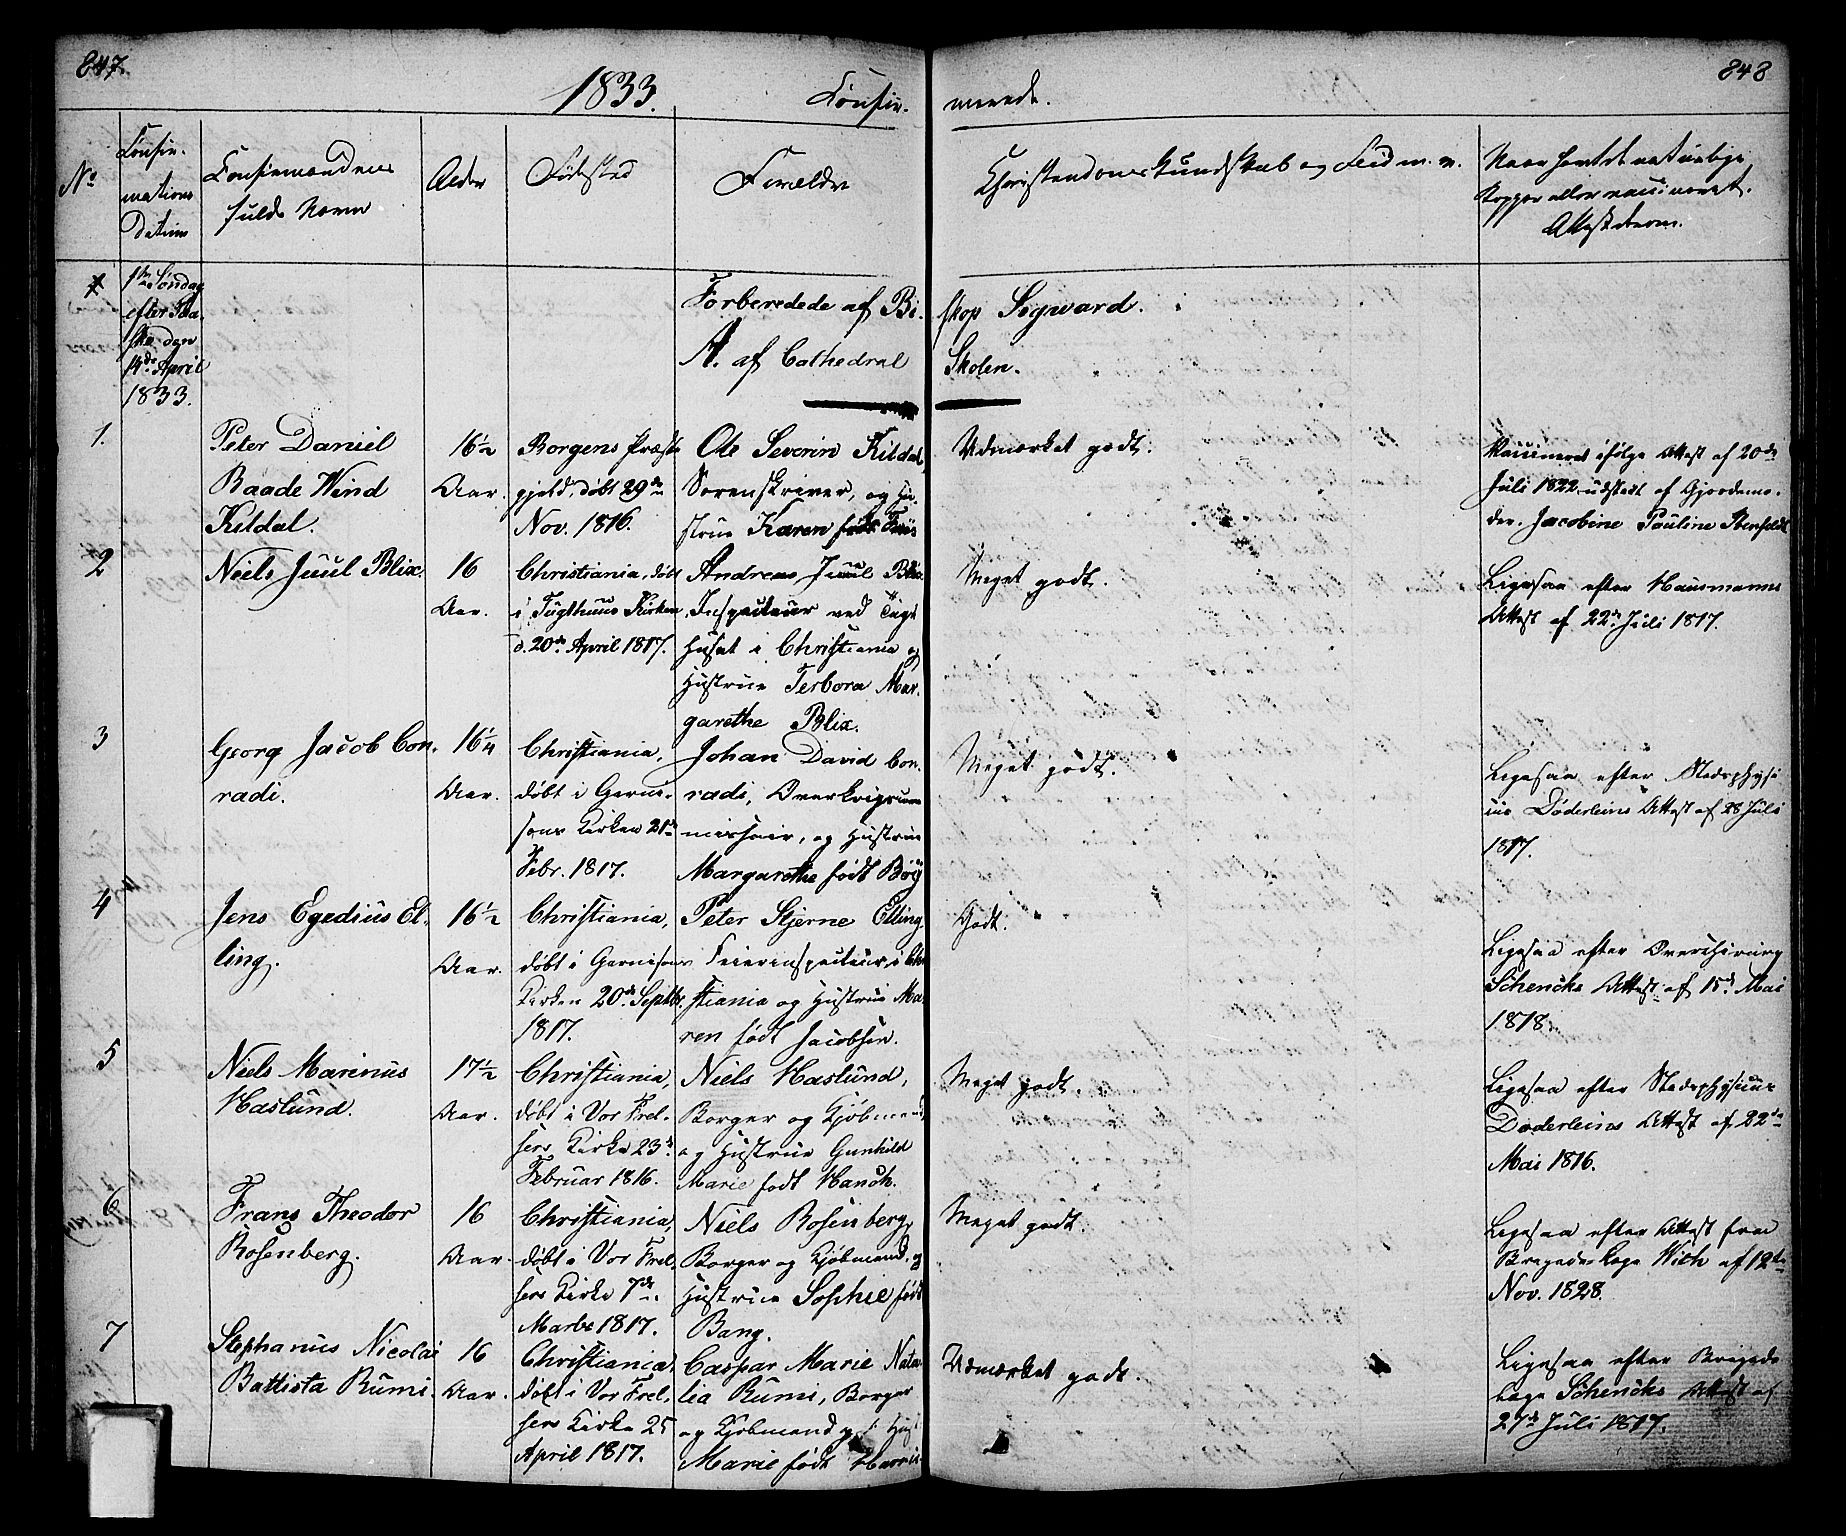 847.
848
1833.
Confir-
merede.
No
Confir-
mations
Datum
Confirmandens
fulde Navn
Alder
Fødested
Forældre
Christendomskundskab og Flid m. v.
Naar havt de naturlige
Kopper eller vaccineret.
Attest derom.
1ste Søndag
efter Paa-
ske den
14de April
1833.
Forberedede af Bi-
skop Sigward.
A. af Cathedral
Skolen.
1.
Peter Daniel
Baade Wind
Kildal.
16½
Aar.
Borgens Præste
gjeld, døbt 29de
Nov. 1816.
Ole Severin Kildal,
Sorenskriver, og Hu-
strue Karen født
Udmærket godt.
Vaccineret ifølge Attest af 20de
Juli 1822 udstedt af Gjordemo-
der. Jacobine Pauline Ibenfeldt
2
Niels Juul Blix.
16
Aar.
Christiania, døbt
i Tugthuus Kirken
d. 20de April 1817.
Andreas Juul Blix
Inspecteur ved Tugt
Huset i Christiania og
Hustrue Terbora Mar-
garethe Blix.
Meget godt.
Ligesaa efter Hausmanns
Attest af 22de Juli 1817.
3
Georg Jacob Con-
radi.
16¼
Aar.
Christiania,
døbt i Garni-
sons Kirken 21de
Febr. 1817.
Johan David Con-
radi, Overkrigscom
missair, og Hustrue
Margarethe født Böy
Meget godt.
Ligesaa efter Stadsphysi
cus Döderleins Attest af 28 Juli
1817.
4
Jens Egedius El-
ling.
16½
Aar.
Christiania,
døbt i Garnisons
Kirken 20de Septbr.
1817.
Peter Stjerne Elling
Feierinspecteur i Chri
stiania og Hustrue Ma-
ren født Jacobsen.
Godt.
Ligesaa efter Overchirurg
Schencks Attest af 15de Mai
1818.
5
Niels Marinus
Haslund.
17½
Aar.
Christiania,
døbt i Vor Frel-
sers Kirke 23de
Februar 1816.
Niels Haslund,
Borger og Kjöbmand
og Hustrue Gunhild
Marie født Hanch.
Meget godt.
Ligesaa efter Stadsphysicus
Döderleins Attest af 22de
Mai 1816.
6
Frans Theodor
Rosenberg.
16
Aar.
Christiania,
døbt i Vor Frel-
sers Kirke 7de
Marts 1817.
Niels Rosenberg,
Borger og Kjöbmand, og
Hustrue Sophie født
Bang.
Meget godt.
Ligesaa efter Attest fra
Brigadelæge With af 12te
Nov. 1828.
7
Stephanus Nicolai
Battista Rumi.
16
Aar.
Christiania,
døbt i Vor Frel-
sers Kirke 25
April 1817.
Caspar Marie Nata
lia Rumi, Borger
og Kjöbmand og
Marie født
Udmærket godt.
Ligesaa efter Brigade
læge Schencks Attest af
27de Juli 1817.